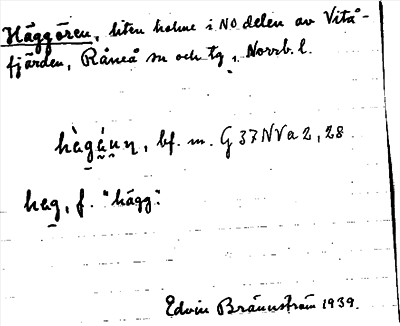 Häggören, liten holme i NO delen av Vitå-
fjärden, Råneå sn och tg, Norrb. l.
hàgǻun, bf. m. G 37 NV a 2, 28
hag, f. "hägg".
Edvin Brännström 1939.